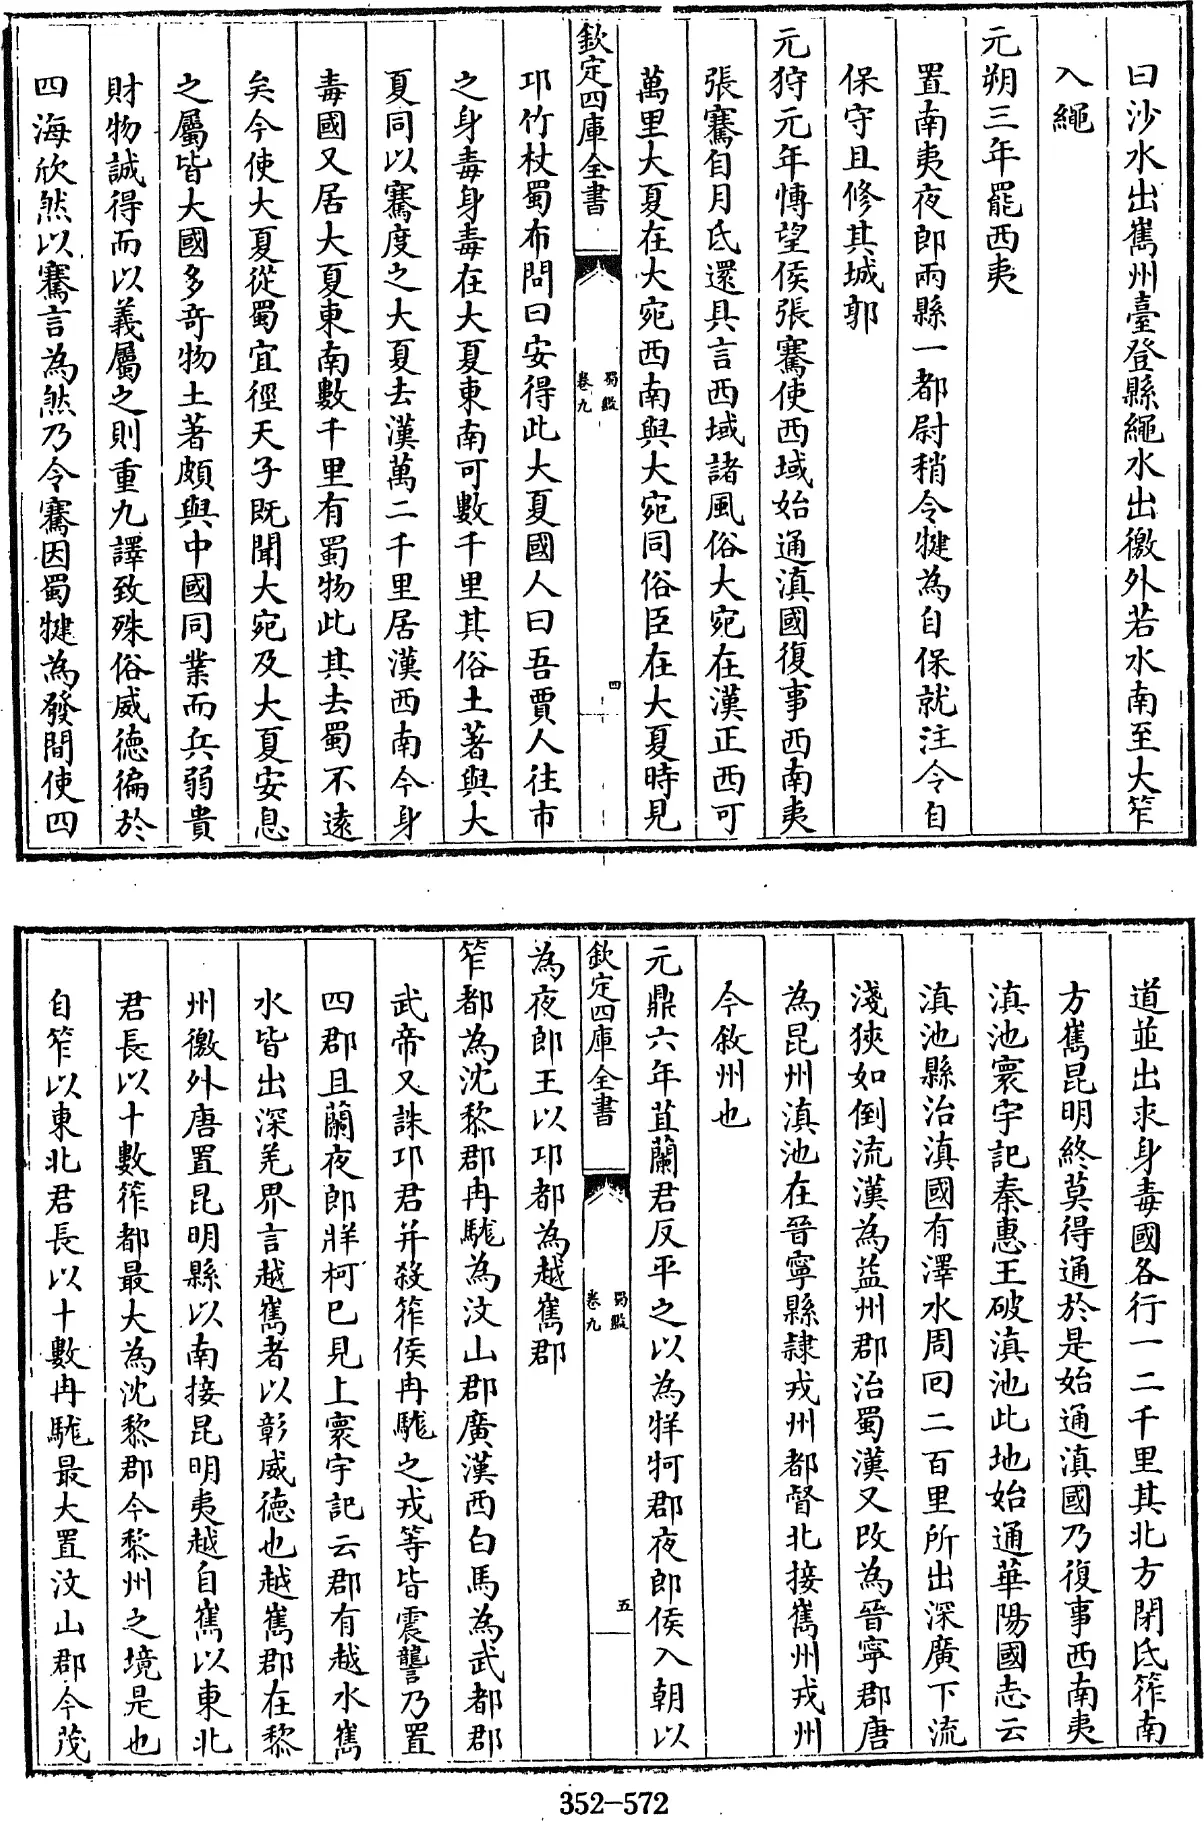 曰沙水出嶲州臺登縣繩水出徼外若水南至大笮
入繩
元朔三年罷西夷
置南夷夜郎兩縣一都尉稍令犍為自保就注令自
保守且修其城郭
元狩元年博望侯張騫使西域始通滇國復事西南夷
張騫自月氏還具言西域諸風俗大宛在漢正西可
萬里大夏在大宛西南與大宛同俗臣在大夏時見
欽定四庫全書
蜀鑑
卷九
四
邛竹杖蜀布問曰安得此大夏國人曰吾賈人往市
之身毒身毒在大夏東南可數千里其俗土著與大
夏同以騫度之大夏去漢萬二千里居漢西南今身
毒國又居大夏東南數千里有蜀物此其去蜀不遠
矣今使大夏從蜀宜徑天子既聞大宛及大夏安息
之屬皆大國多奇物土著頗與中國同業而兵弱貴
財物誠得而以義屬之則重九譯致殊俗威德徧於
四海欣然以騫言為然乃令騫因蜀犍為發間使四
道並出求身毒國各行一二千里其北方閉氐筰南
方嶲昆明終莫得通於是始通滇國乃復事西南夷
滇池寰宇記秦惠王破滇池此地始通華陽國志云
滇池縣治滇國有澤水周回二百里所出深廣下流
淺狹如倒流漢為益州郡治蜀漢又改為晉寧郡唐
為昆州滇池在晉寧縣隷戎州都督北接嶲州戎州
今敘州也
元鼎六年苴蘭君反平之以為牂牁郡夜郎侯入朝以
欽定四庫全書
蜀鑑
卷九
五
為夜郎王以邛都為越嶲郡
笮都為沈黎郡冉駹為汶山郡廣漢西白馬為武都郡
武帝又誅邛君并殺筰侯冉駹之戎等皆震讋乃置
四郡且蘭夜郎牂柯已見上寰宇記云郡有越水嶲
水皆出深羌界言越嶲者以彰威德也越嶲郡在黎
州徼外唐置昆明縣以南接昆明夷越自嶲以東北
君長以十數筰都最大為沈黎郡今黎州之境是也
自笮以東北君長以十數冉駹最大置汶山郡今茂
352-572